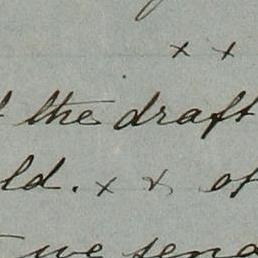 x x
the draft
ld. x x of
we send